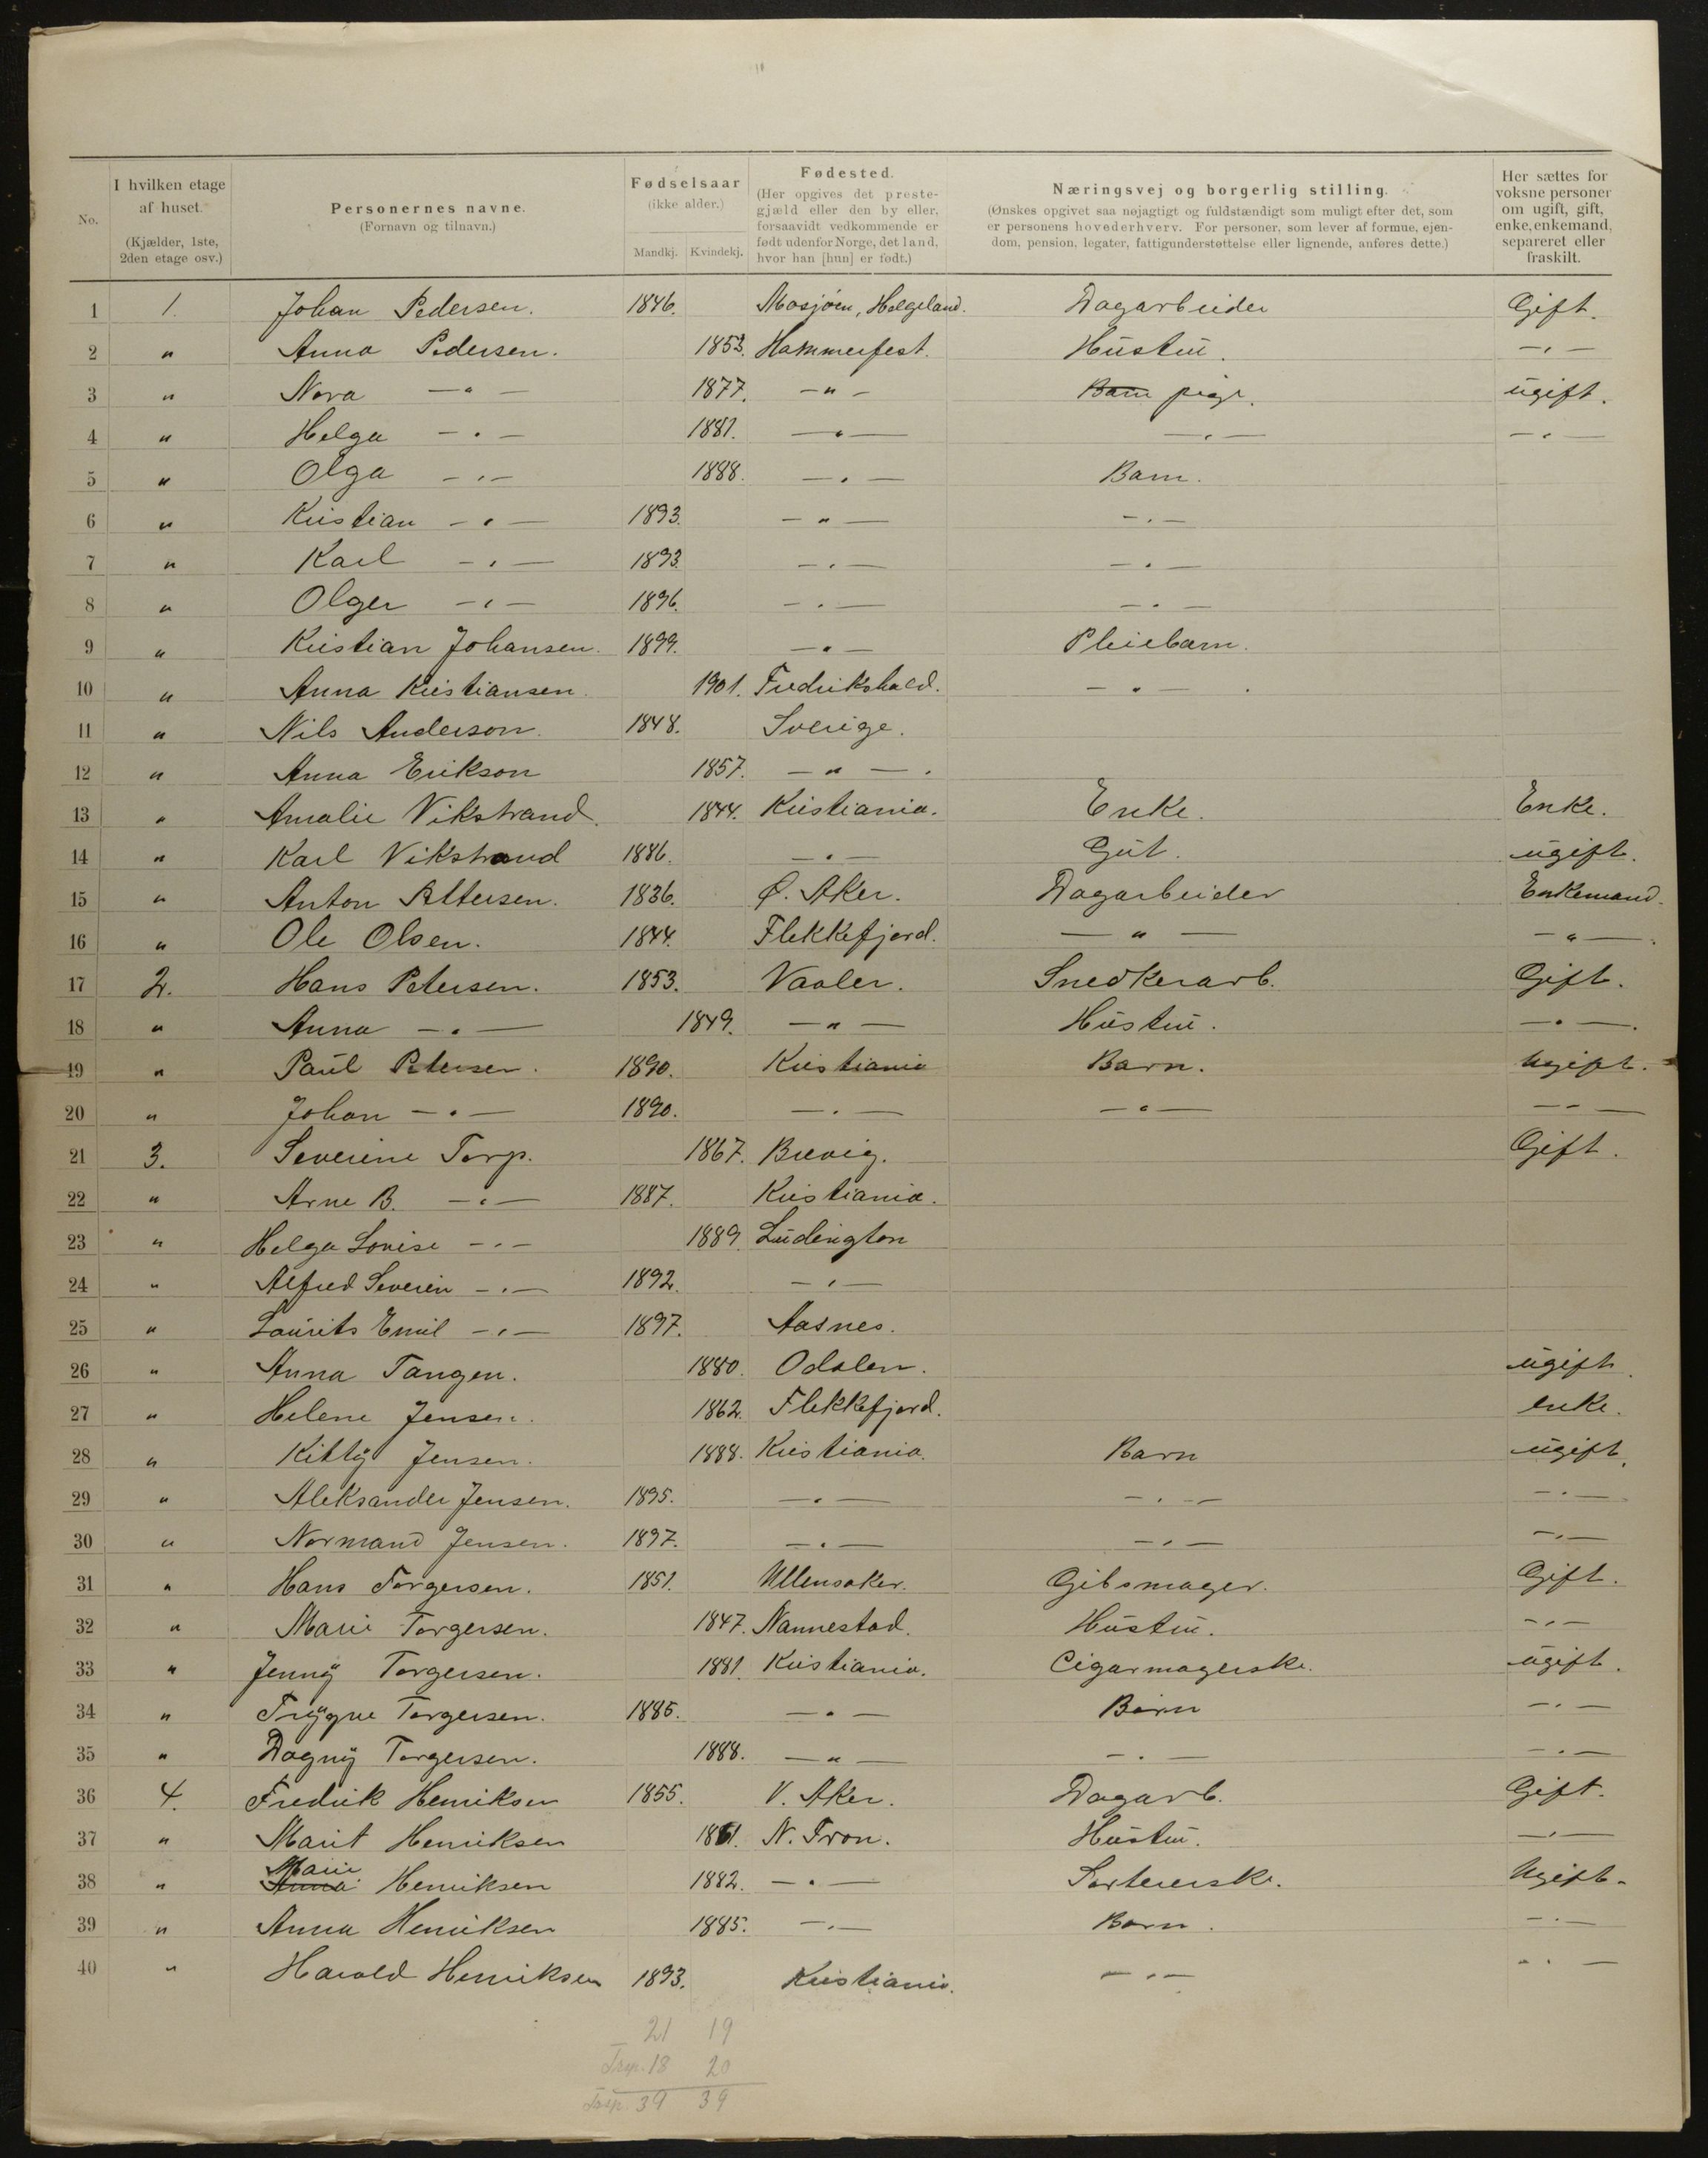 No.
I hvilken etage af huset. (Kjælder, 1ste, 2den etage osv.)
Personernes navne. (Fornavn og tilnavn.)
Fødselsaar (ikke alder.) Mandkj. Kvindekj.
Fødested. (Her opgives det prestegjæld eller den by eller, forsaavidt vedkommende er født udenfor Norge, det land, hvor han [hun] er født.)
Næringsvej og borgerlig stilling. (Ønskes opgivet saa nøjagtigt og fuldstændigt som muligt efter det, som er personens hovederhverv. For personer, som lever af formue, ejendom, pension, legater, fattigunderstøttelse eller lignende, anføres dette.)
Her sættes for voksne personer om ugift, gift, enke, enkemand, separeret eller fraskilt.
1 1. Johan Pedersen. 1846. Mosjöen, Helgeland. Dagarbeider Gift.
2 " Anna Pedersen. 1853. Hammerfest. Hustru. —"—
3 " Nora —"— 1877. —"— Barn pige. ugift.
4 " Helga —"— 1881. —"— —"— —"—
5 " Olga —"— 1888. —"— Barn.
6 " Kristian —"— 1893. —"— —"—
7 " Karl —"— 1893. —"— —"—
8 " Olger —"— 1896. —"— —"—
9 " Kristian Johansen. 1899. —"— Pleiebarn.
10 " Anna Kristiansen. 1901. Fredrikshald. —"—
11 " Nils Anderson. 1848. Sverige.
12 " Anna Erikson 1857. —"—
13 " Amalie Vikstrand. 1844. Kristiania. Enke. Enke.
14 " Karl Vikstrand 1886. —"— Gut. ugift.
15 " Anton Pettersen. 1836. Ø. Aker. Dagarbeider Enkemand.
16 " Ole Olsen. 1844. Flekkefjord. —"— —"—
17 2. Hans Petersen. 1853. Vaaler. Snedkerarb. Gift.
18 " Anna —"— 1849. —"— Hustru. —"—
19 " Paul Petersen. 1890. Kristiania Barn. Ugift.
20 " Johan —"— 1890. —"— —"— —"—
21 3. Severine Torp. 1867. Brevig. Gift.
22 " Arne B. —"— 1887. Kristiania.
23 " Helga Lovise —"— 1889. Ludington
24 " Alfred Severin —"— 1892. —"—
25 " Laurits Emil —"— 1897. Aasnes.
26 " Anna Tangen. 1880. Odalen. ugift.
27 " Helene Jensen. 1862. Flekkefjord. enke.
28 " Kitty Jensen. 1888. Kristiania. Barn ugift.
29 " Aleksander Jensen. 1895. —"— —"— —"—
30 " Normand Jensen. 1897. —"— —"— —"—
31 " Hans Torgersen. 1851. Ullensaker. Gibsmager. Gift.
32 " Marie Torgersen. 1847. Nannestad. Hustru. —"—
33 " Jenny Torgersen. 1881. Kristiania. Cigarmagerske. ugift.
34 " Trygve Torgersen. 1885. —"— Barn —"—
35 " Dagny Torgersen. 1888. —"— —"— —"—
36 4. Fredrik Henriksen 1855. V. Aker. Dagarb. Gift.
37 " Marit Henriksen 1861. N. Fron. Hustru. —"—
38 " Anna Marie Henriksen 1882. —"— Sortererske. Ugift.
39 " Anna Henriksen 1885. —"— Barn. —"—
40 " Harald Henriksen 1893. Kristiania. —"— —"—
21 19
Trsp. 18 20
Trsp. 39 39